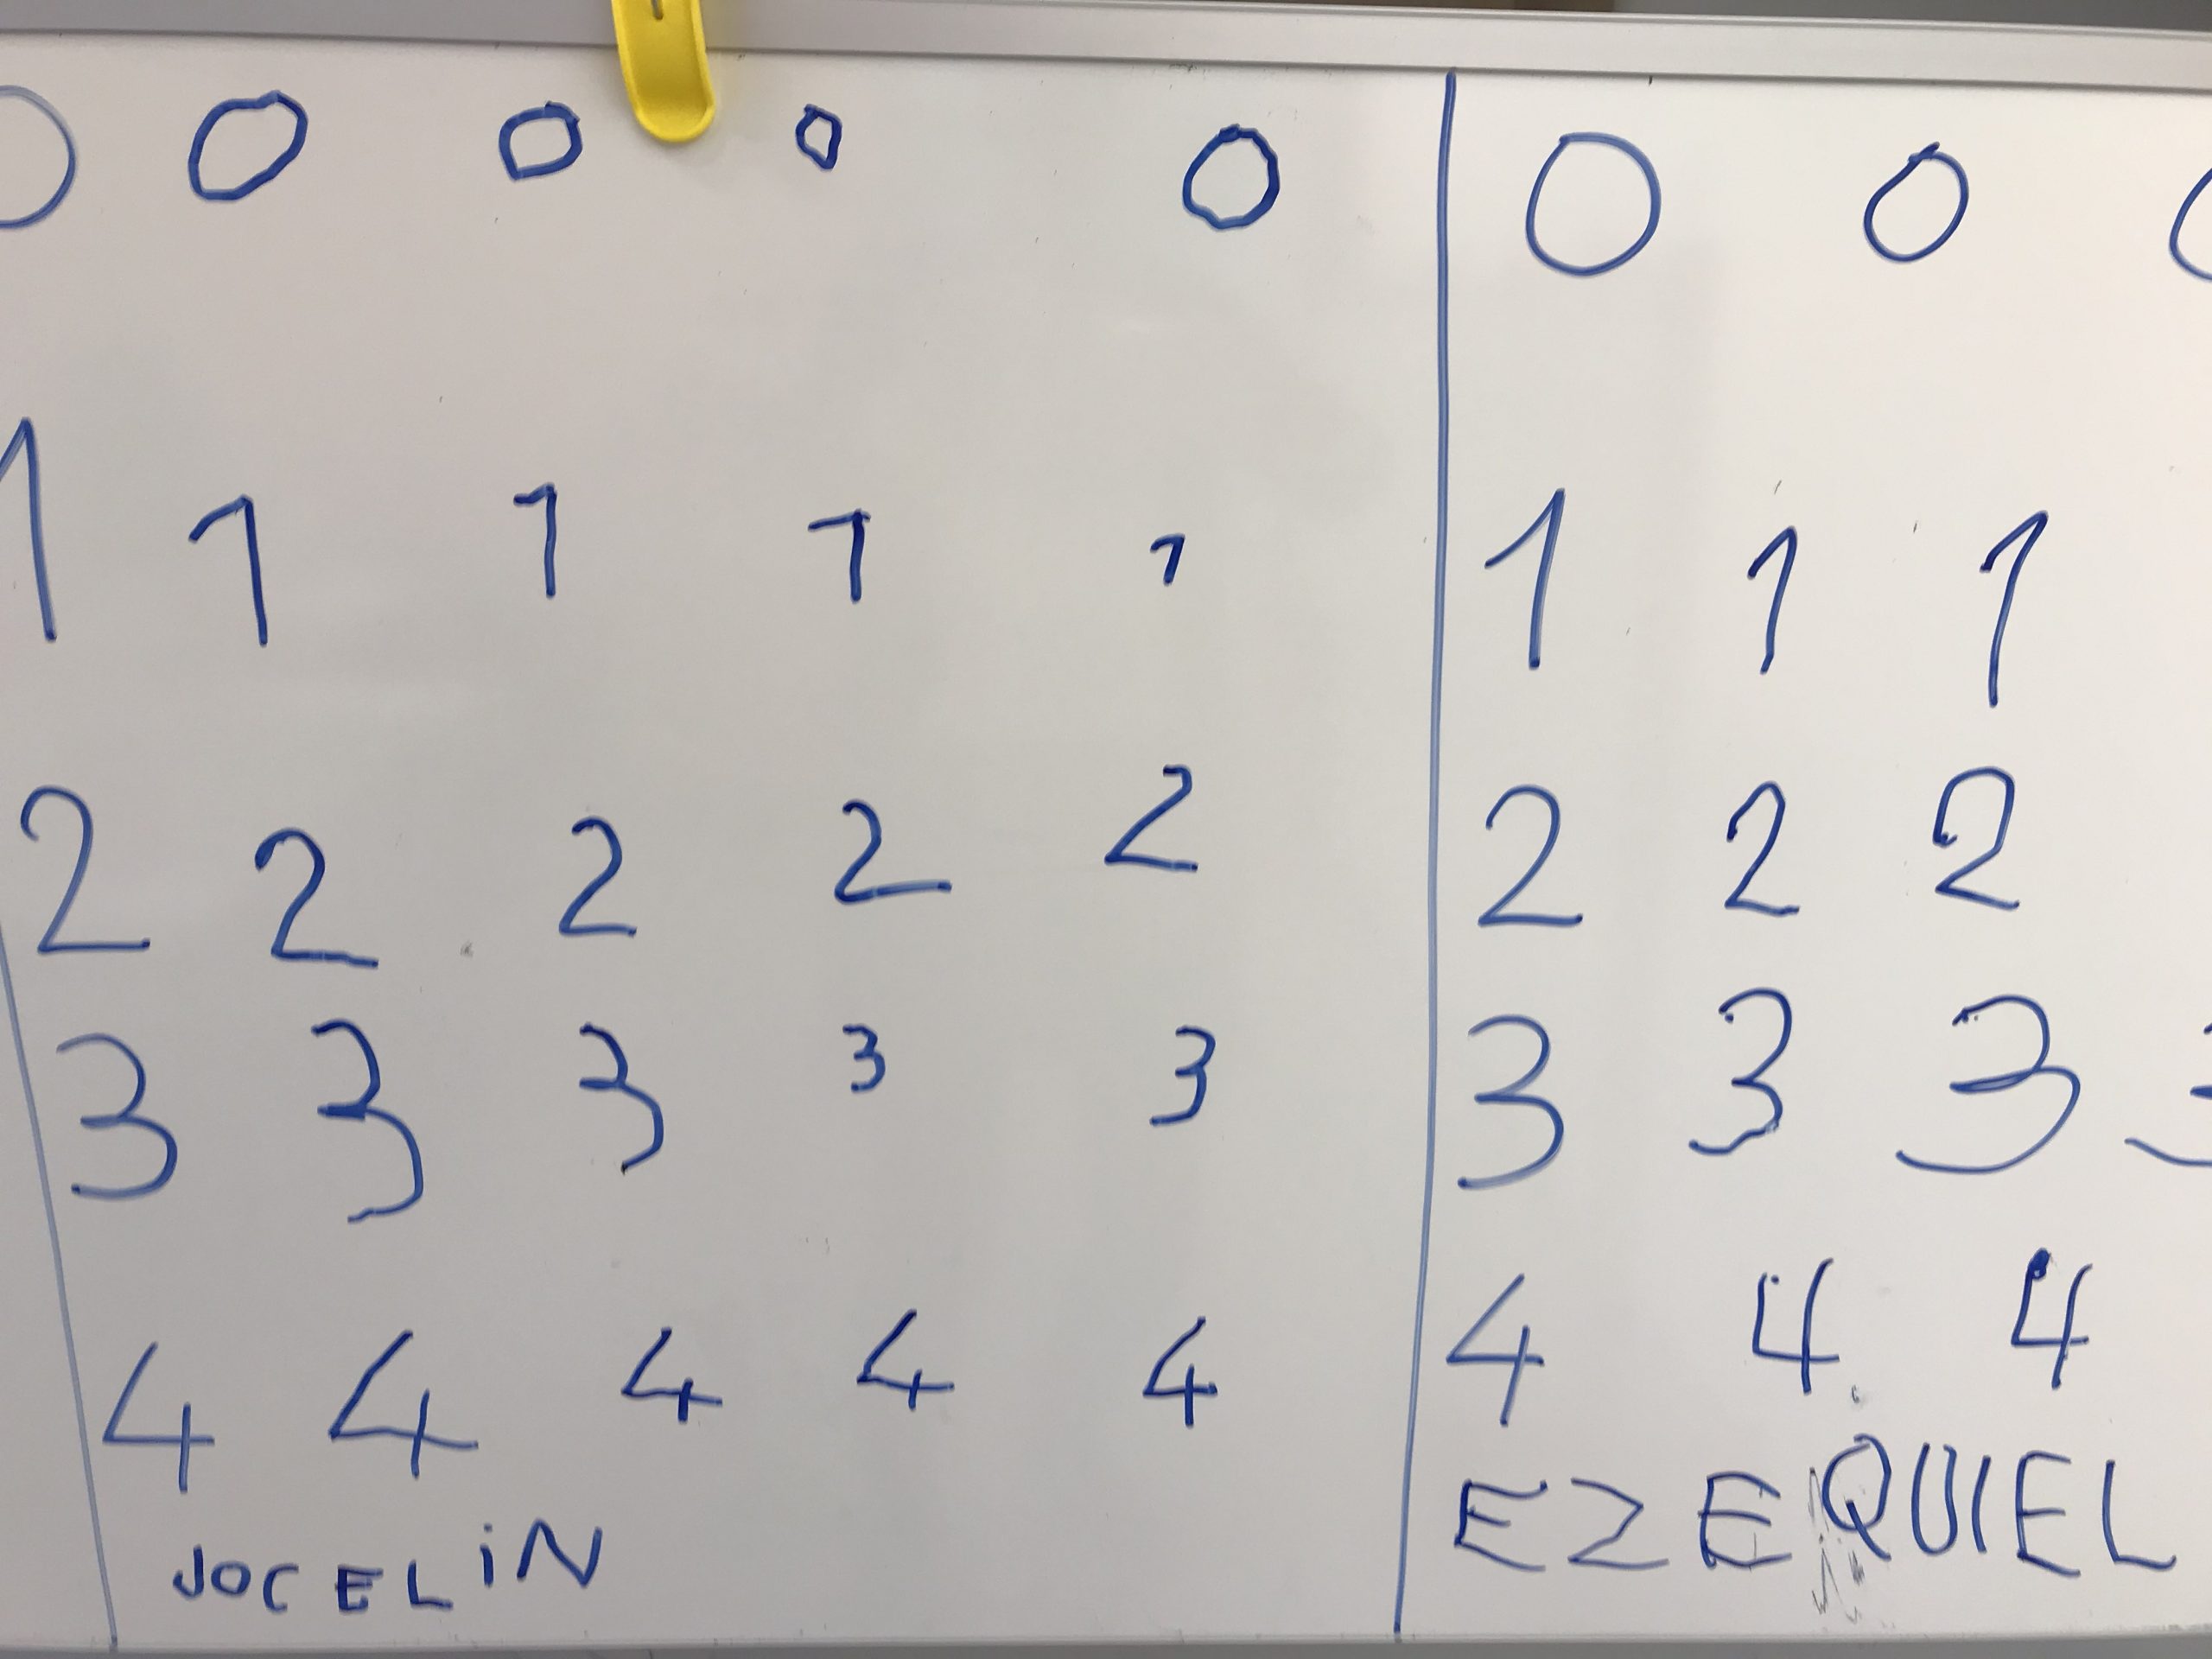 0 0 0 0 0
1 1 1 1 1
2 2 2 2 2
3 3 3 3 3
4 4 4 4 4
JOCELiN
0 0 0
1 1 1
2 2 2
3 3 3 3
4 4 4
EZEQUIEL